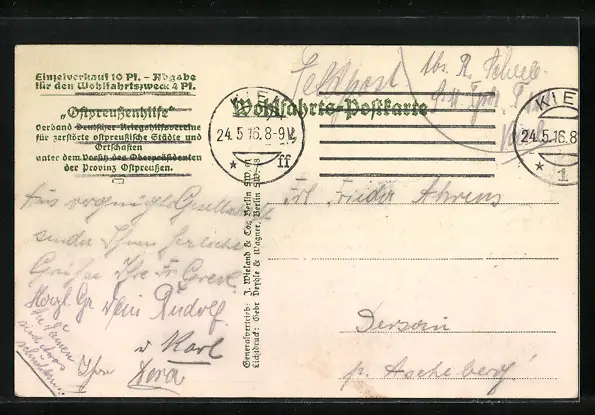 Einzelverkauf 10 Pf. - Abgabe
für den Wohlfahrtszweck 4 Pf.
„Ostpreußenhilfe"
Verband Deutscher Kriegshilfsvereine
für zerstörte ostpreußische Städte und
Ortschaften
unter dem Vorsitz des Oberpräsidenten
der Provinz Ostpreußen.
Wohlfahrts-Postkarte
Feldpost
KIEL
24.5.16.8-9V.
* ff
KIEL
24.5.16.8
* 1
Generalvertrieb: J. Wieland & Co., Berlin SW.
Lichtdruck: Gebr Deyhle & Wagner, Berlin SW.
Frl Frieda Ahrens
Dersau
p. Ascheberg
Aus vergnügter Gesellschaft
sendet Ihnen herzliche
Grüße Ihre Fr
Herzl Gr Dein Rudolf
v Karl
Dora